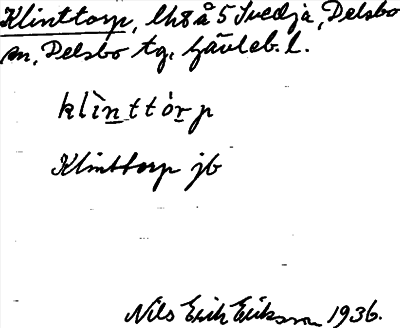 Klinttorp, lht å 5 Svedja, Delsbo
sn, Delsbo tg, Gävleb. l.
klìnttòrp
Klinttorp jb
Nils Erik Eriksson 1936.